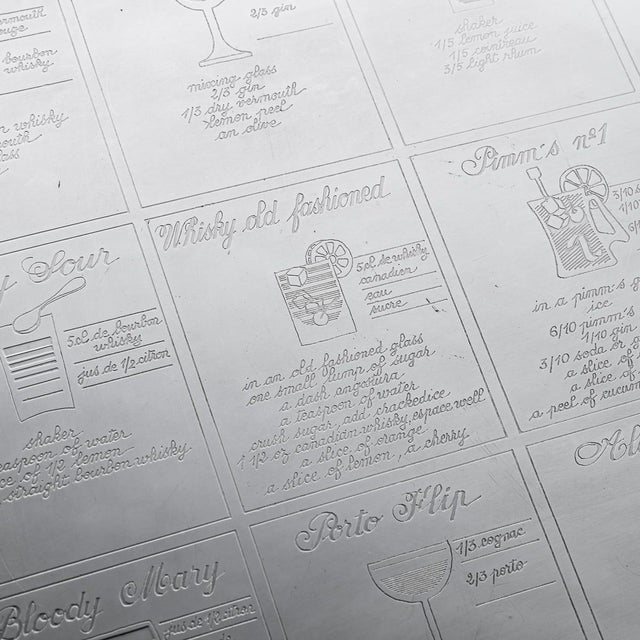 vermouth
rouge
bourbon
whisky
whisky
2/3 gin
mixing glass
2/3 gin
1/3 dry vermouth
lemon peel
an olive
shaker
1/5 lemon juice
1/5 cointreau
3/5 light rhum
y Sour
5 cl de bourbon
whisky
jus de 1/2 citron
shaker
teaspoon of water
1/2 lemon
straight bourbon whisky
Whisky old fashioned
5 cl de whisky
canadien
eau
sucre
in an old fashioned glass
one small lump of sugar
a dash angostura
a teaspoon of water
crush sugar, add crackedice
1 1/2 oz canadian whisky, espace well
a slice of orange
a slice of lemon, a cherry
Pimm's nº1
3/10
1/10
in a pimm's
ice
6/10 pimm's
1/10 gin
3/10 soda or
a slice of
a slice of
a peel of cucum
Bloody Mary
jus de 1/2 citron
Porto Flip
1/3 cognac
2/3 porto
Al